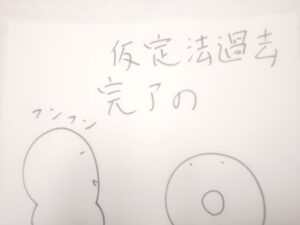 仮定法過去
完了の
フンフン